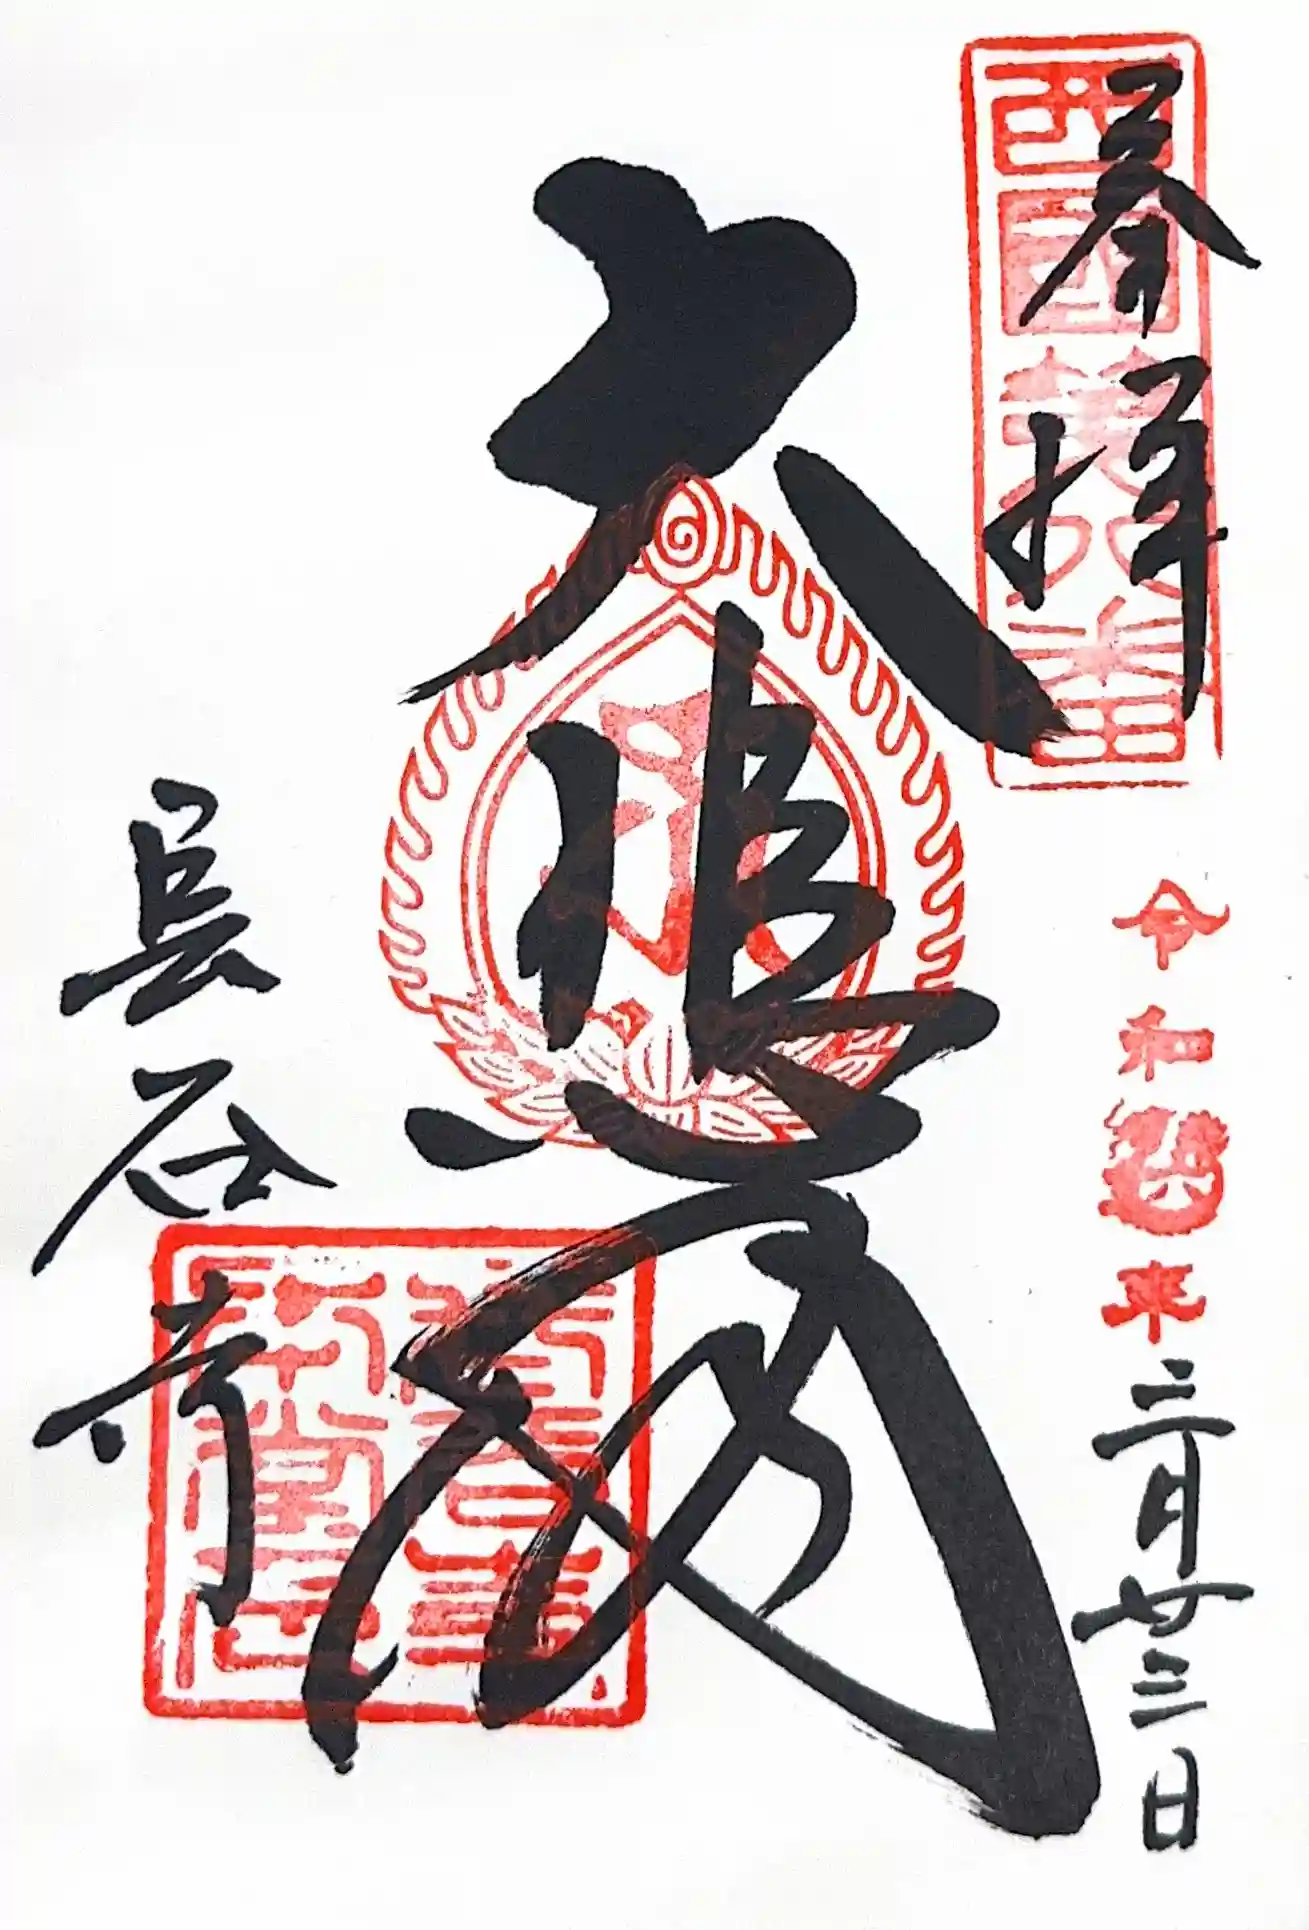 奉拝
西國第八番
令和六年三月廿三日
大悲閣
長谷寺